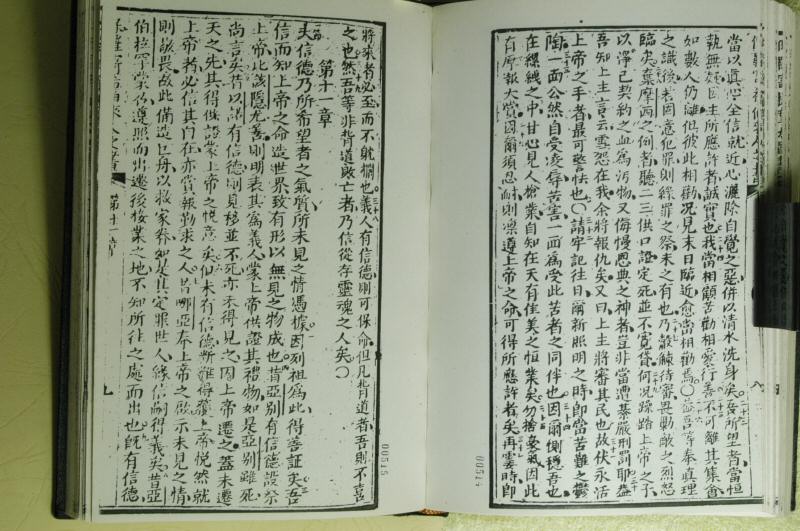 當以眞心全信就近心灑除自覺之惡併以清水洗身矣吾所望者當恒
執無疑因主所應許者誠實也我當相顧苦勸相愛行善不可離其集會
如數人仍離但彼此相勸况見末日臨近愈當相勸焉〇盖吾等奉眞理
之識後若固意犯罪則贖罪之祭未之有也乃觳觫待審畏勦敵之烈怒
臨矣棄摩西之例者聽二三供口證定死並不寬貸何况踩踏上帝之子
以淨己契約之血爲污物又侮慢恩典之神者豈非當遭綦嚴刑罰耶盖
吾知上主言云雪怨在我余將報仇矣又曰上主將審其民也故伏永活
上帝之手者最可警怯也〇請牢記往日爾新照明之時卽當苦難之鬱
陶一面公然自受凌辱苦害一面爲受此苦者之同伴也因爾惻穩吾也
在縲絏之中甘心見人搶業自知在天有佳美之恒業矣勿捨毫氣因此
有所報大賞因爾須忍耐則凜遵上帝之命可得所應許者矣再霎時卽
00514
將來者必至而不躭擱也義人有信德則可保命但凡背道者吾則不喜
之也然吾等非背道敗亡者乃信從存靈魂之人矣〇
第十一章
夫信德乃所希望者之氣質所未見之情憑據因列祖爲此得善証矣吾
信而知上帝之命造世界致有形以無見之物成也昔亞別有信德設祭
上帝比該隱尤善則明表其爲義人蒙上帝供證其禮物如是亞別雖死
尚言矣昔以諾有信德則見移並不死亦未得見之因上帝遷之蓋未遷
天之先其得供證蒙上帝之悅意矣但未有信德斷難得獲上帝悅然就
上帝者必信其自在亦賞報勤求之人昔哪亞奉上帝之啟示未見之情
則敬畏故此備造乜舟以救家眷如是其定罪世人緣信而得義矣昔亞
伯拉罕蒙召遵照而出遷後接業之地不知所往之處而出也旣有信德
第十一章
九
00515